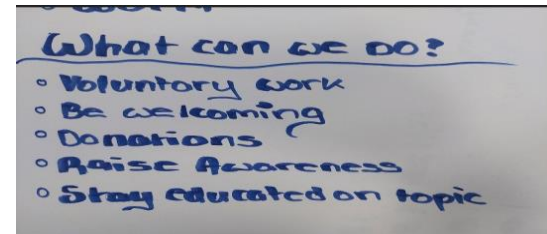 What can we DO?
◦ Voluntory work
◦ Be welcoming
◦ Donations
◦ Raise Awareness
◦ Stay educated on topic